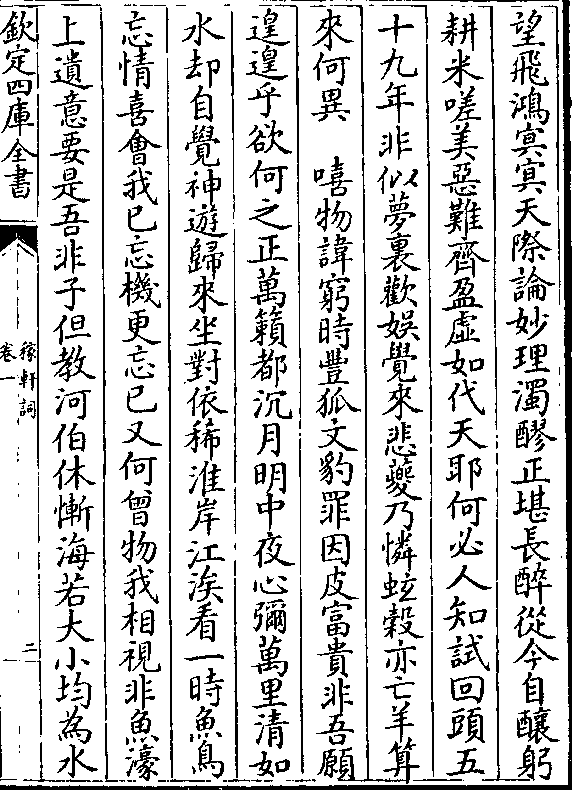 望飛鴻㝠㝠天際論妙理濁醪正堪長醉從今自釀躬
耕米嗟美惡難齊盈虛如代天耶何必人知試回頭五
十九年非似夢裏歡娛覺來悲夔乃憐蚿榖亦亡羊算
來何異　嘻物諱窮時豐狐文豹罪因皮富貴非吾願
遑遑乎欲何之正萬籟都沉月明中夜心彌萬里清如
水却自覺神遊歸來坐對依稀淮岸江涘看一時魚鳥
忘情喜會我已忘機更忘已又何曾物我相視非魚濠
上遺意要是吾非子但教河伯休慚海若大小均為水
欽定四庫全書
稼軒詞
卷一
二